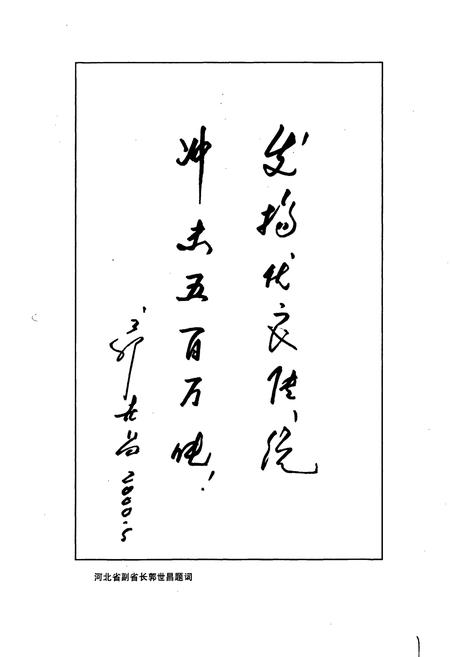 发扬优良传统
冲击五百万吨!
郭世昌 2000.5
河北省副省长郭世昌题词